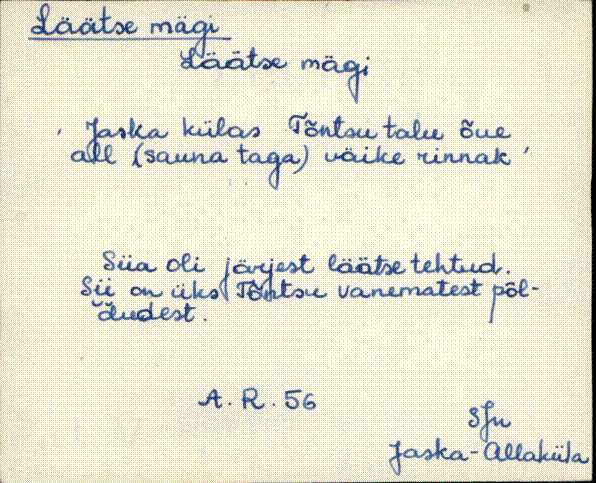 Läätse mägi
Läätse mägi
' Jaska külas Tõntsu talu õue
all (sauna taga) väike rinnak '
Siia oli järjest läätse tehtud.
Sii on üks Tõntsu vanematest põl-
dudest.
A. R. 56
SJn
Jaska-Allaküla